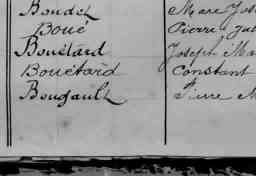 Boudet Marc Jos
Boué Pierre Jul
Bouëtard Joseph Ma
Bouëtard Constant
Bougault Pierre M